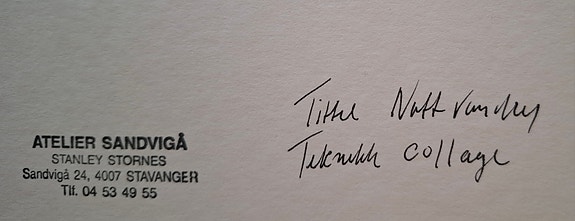 Tittel Nattvandrer
Teknikk collage
ATELIER SANDVIGÅ
STANLEY STORNES
Sandvigå 24, 4007 STAVANGER
Tlf. 04 53 49 55